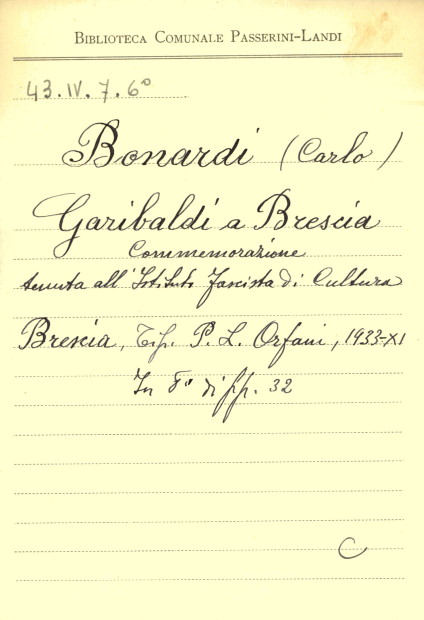 BIBLIOTECA COMUNALE PASSERINI-LANDI
43.IV.7.6°
Bonardi (Carlo)
Garibaldi a Brescia
Commemorazione
tenuta all'Istituto Fascista di Cultura
Brescia, Tip. P. L. Orfani, 1933-XI
In 8° di pp. 32
C